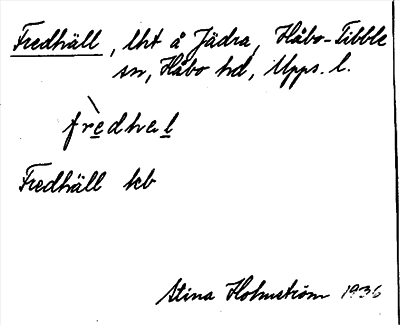 Fredhäll, lht å Jädra, Håbo-Tibble
sn, Håbo hd, Upps. l.
fredhel
Fredhäll kb
Stina Holmström 1936